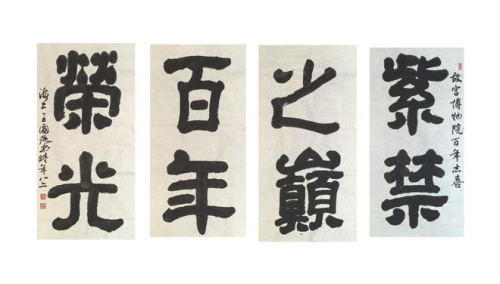 故宮博物院百年志喜
紫禁
之巔
百年
榮光
海上王國
時年八